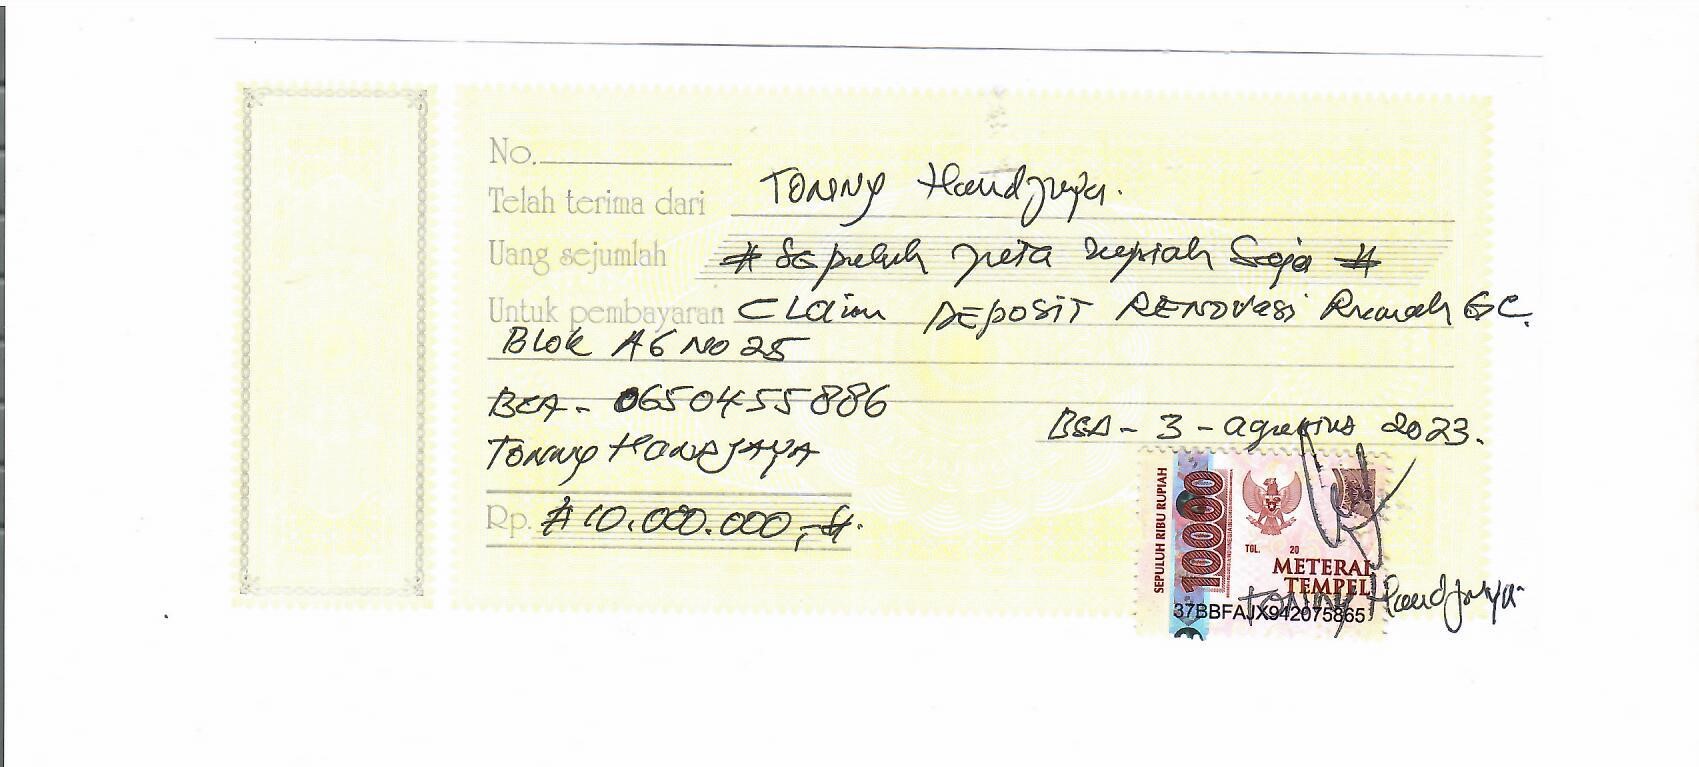 No.
Telah terima dari Tonny Handjaya.
Uang sejumlah # Sepuluh juta rupiah Saja #
Untuk pembayaran CLaim DEPOSIT RENOVasi Rumah GC.
Blok A6 No 25
BCA - 0650455886
BSD - 3 - agustus 2023.
Tonny HANDJAYA
Rp. # 10.000.000,- #.
SEPULUH RIBU RUPIAH
10000
TGL. 20
METERAI
TEMPEL
Tonny Handjaya
37BBFAJX942075865